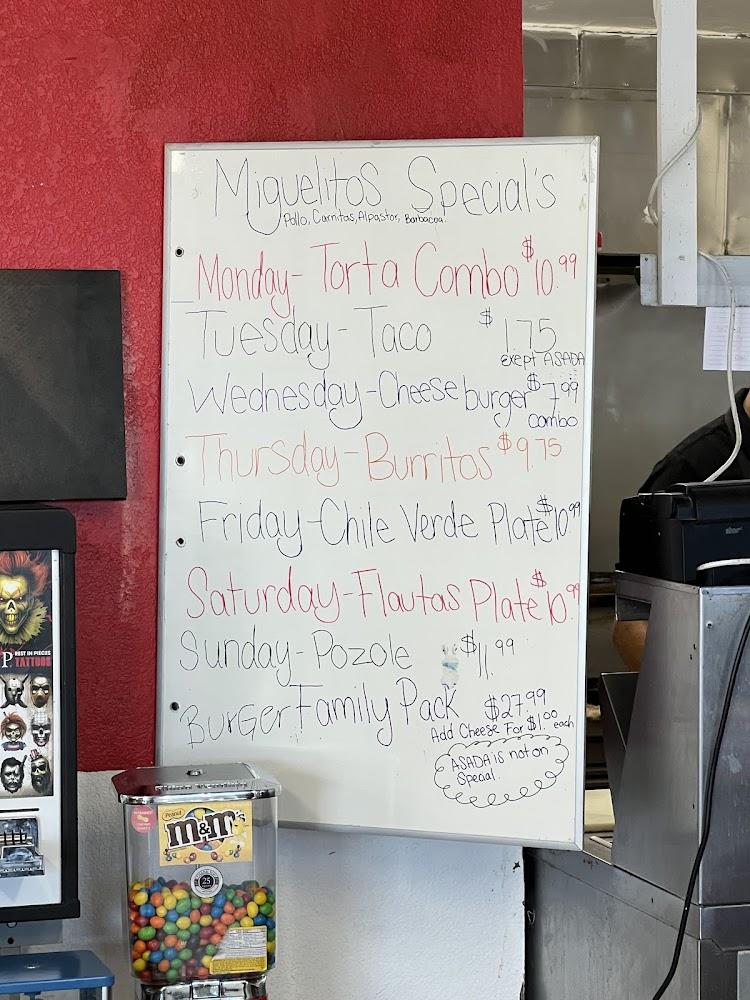 Miguelitos Special's
Pollo, Carnitas, Alpastor, Barbacoa
Monday- Torta Combo $10.99
Tuesday-Taco $1.75
exept ASADA
Wednesday-Cheese burger $7.99
combo
Thursday-Burritos $9.75
Friday-Chile Verde Plate $10.99
Saturday-Flautas Plate $10.99
Sunday-Pozole $11.99
BurGer Family Pack $27.99
Add Cheese For $1.00 each
ASADA is not on
Special.
REST IN PIECES
TATTOOS
Peanut
m&m's
25